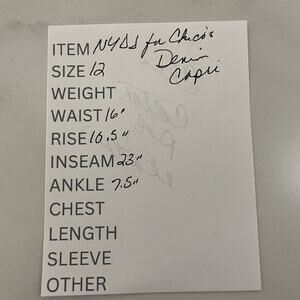 ITEM NYDJ for Chico's
Denim
Capri
SIZE 12
WEIGHT
WAIST 16"
RISE 10.5"
INSEAM 23"
ANKLE 7.5"
CHEST
LENGTH
SLEEVE
OTHER